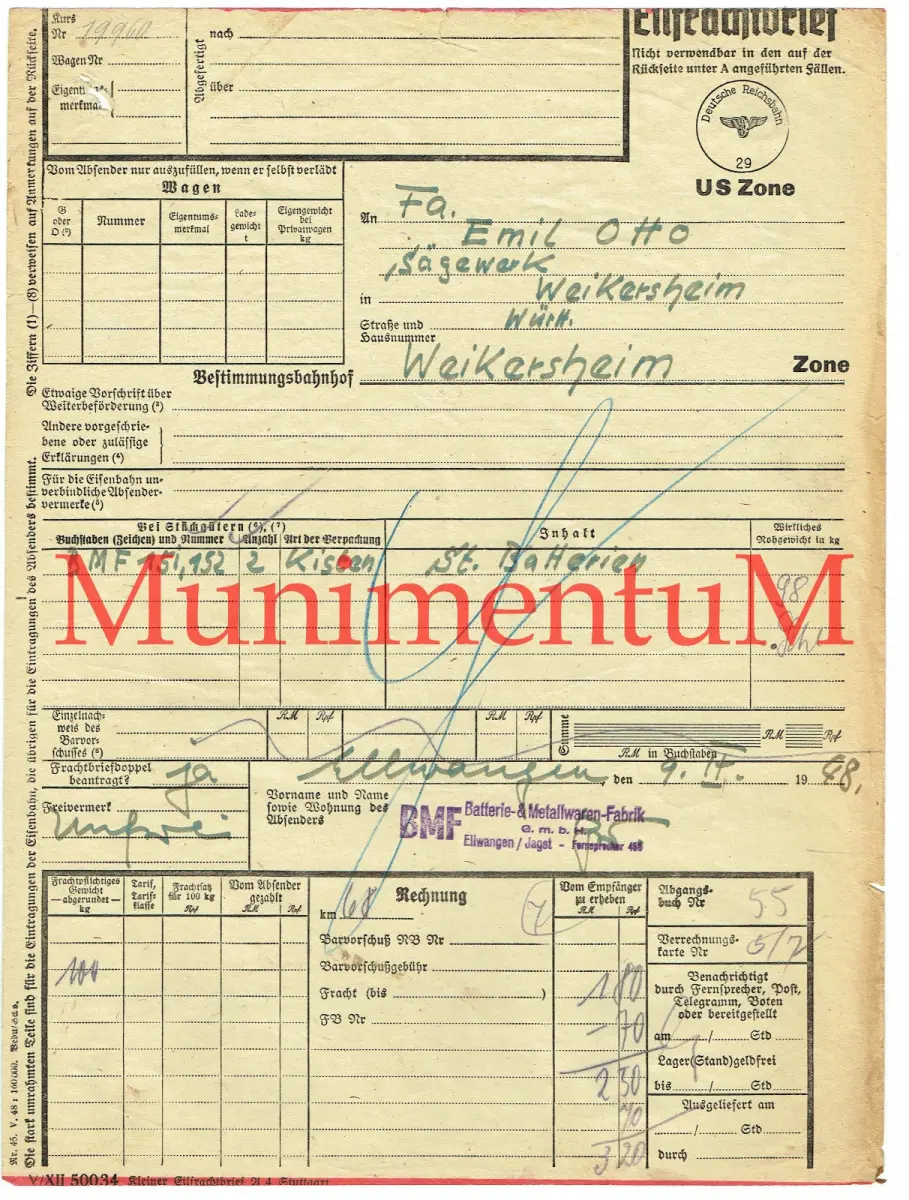 Kurs
Nr 19960
Wagen Nr
Eigentums-
merkmal
Abgefertigt
nach
über
Eilfrachtbrief
Nicht verwendbar in den auf der
Rückseite unter A angeführten Fällen.
Deutsche Reichsbahn
29
US Zone
Die Ziffern (1)—(8) verweisen auf Anmerkungen auf der Rückseite.
Vom Absender nur auszufüllen, wenn er selbst verlädt
Wagen
G oder O (²)
Nummer
Eigentums-
merkmal
Lade-
gewicht
t
Eigengewicht
bei
Privatwagen
kg
An Fa.
Emil Otto
Sägewerk
in Weikersheim
Straße und
Hausnummer
Württ.
Bestimmungsbahnhof Weikersheim
Zone
Etwaige Vorschrift über
Weiterbeförderung (³)
Andere vorgeschrie-
bene oder zulässige
Erklärungen (⁴)
Für die Eisenbahn un-
verbindliche Absender-
vermerke (⁵)
Bei Stückgütern (⁶), (⁷)
Buchstaben (Zeichen) und Nummer
Anzahl
Art der Verpackung
Inhalt
Wirkliches
Rohgewicht in kg
BMF 151, 152 2 Kisten St. Batterien
98
MunimentuM
Einzelnach-
weis des
Barvor-
schusses (⁸)
RM Rpf
RM Rpf
Summe
RM Rpf
RM in Buchstaben
Frachtbriefdoppel
beantragt? ja
Ellwangen, den 9. IV. 1948.
Freivermerk
Unfrei
Vorname und Name
sowie Wohnung des
Absenders
BMF Batterie- & Metallwaren-Fabrik
G. m. b. H.
Ellwangen / Jagst - Fernsprecher 455
Frachtpflichtiges
Gewicht
— abgerundet —
kg
Tarif,
Tarif-
klasse
Frachtsatz
für 100 kg
Rpf
Vom Absender
gezahlt
RM Rpf
Rechnung
km 68
7
Vom Empfänger
zu erheben
RM Rpf
Abgangs-
buch Nr 55
Barvorschuß NB Nr
Verrechnungs-
karte Nr 5/7
100
Barvorschußgebühr
Fracht (bis )
1 80
FB Nr
- 70
2 50
70
3 20
Benachrichtigt
durch Fernsprecher, Post,
Telegramm, Boten
oder bereitgestellt
am / Std
Lager(Stand)geldfrei
bis / Std
Ausgeliefert am
/ Std
durch
Die stark umrahmten Teile sind für die Eintragungen der Eisenbahn, die übrigen für die Eintragungen des Absenders bestimmt.
V/XII 50034 Kleiner Eilfrachtbrief A 4 Stuttgart